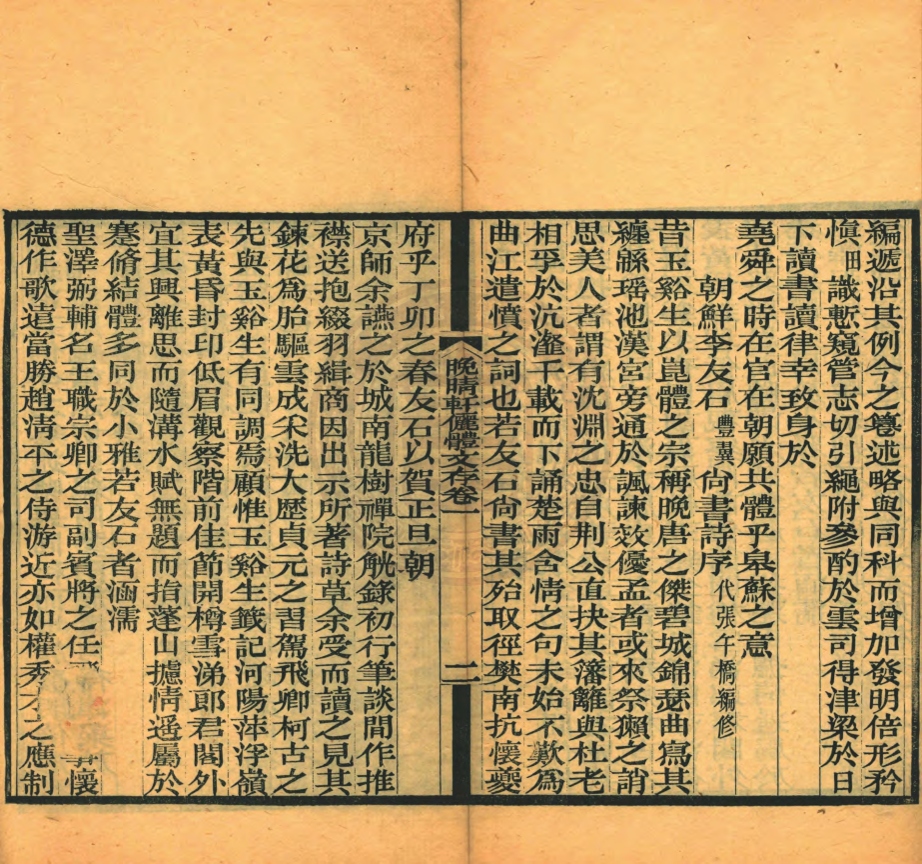 編遞沿其例今之篹述略與同科而增加發明倍形矜
慎田識慙窺管志切引繩附參酌於雲司得津梁於日
下讀書讀律幸致身於
堯舜之時在官在朝願共體乎皋蘇之意
朝鮮李友石豐翼尙書詩序代張午橋編修
昔玉谿生以崑體之宗稱晚唐之傑碧城錦瑟曲寫其
纏緜瑶池漢宮旁通於諷諫效優孟者或來祭獺之誚
思美人者謂有沈淵之忠自荆公直抉其藩籬與杜老
相乎於沆瀣千載而下誦楚雨含情之句未始不歎爲
曲江遣憤之詞也若友石尙書其殆取徑樊南抗懷夔
晚晴軒儷體文存卷一
二
府乎丁卯之春友石以賀正旦朝
京師余讌之於城南龍樹禪院觥錄初行筆談間作推
襟送抱綴羽緝商因出示所著詩草余受而讀之見其
鍊花爲胎驅雲成宋洗大歷貞元之習駕飛卿柯古之
先與玉谿生有同調焉顧惟玉谿生籤記河陽萍浮嶺
表黃昏封印低眉觀察階前佳節開樽雪涕郎君閣外
宜其興離思而隨溝水賦無題而指蓬山攄情遥屬於
蹇脩結體多同於小雅若友石者涵濡
聖澤弼輔名王職宗卿之司副賓將之任懷
德作歌遠當勝趙淸平之侍游近亦如權秀才之應制